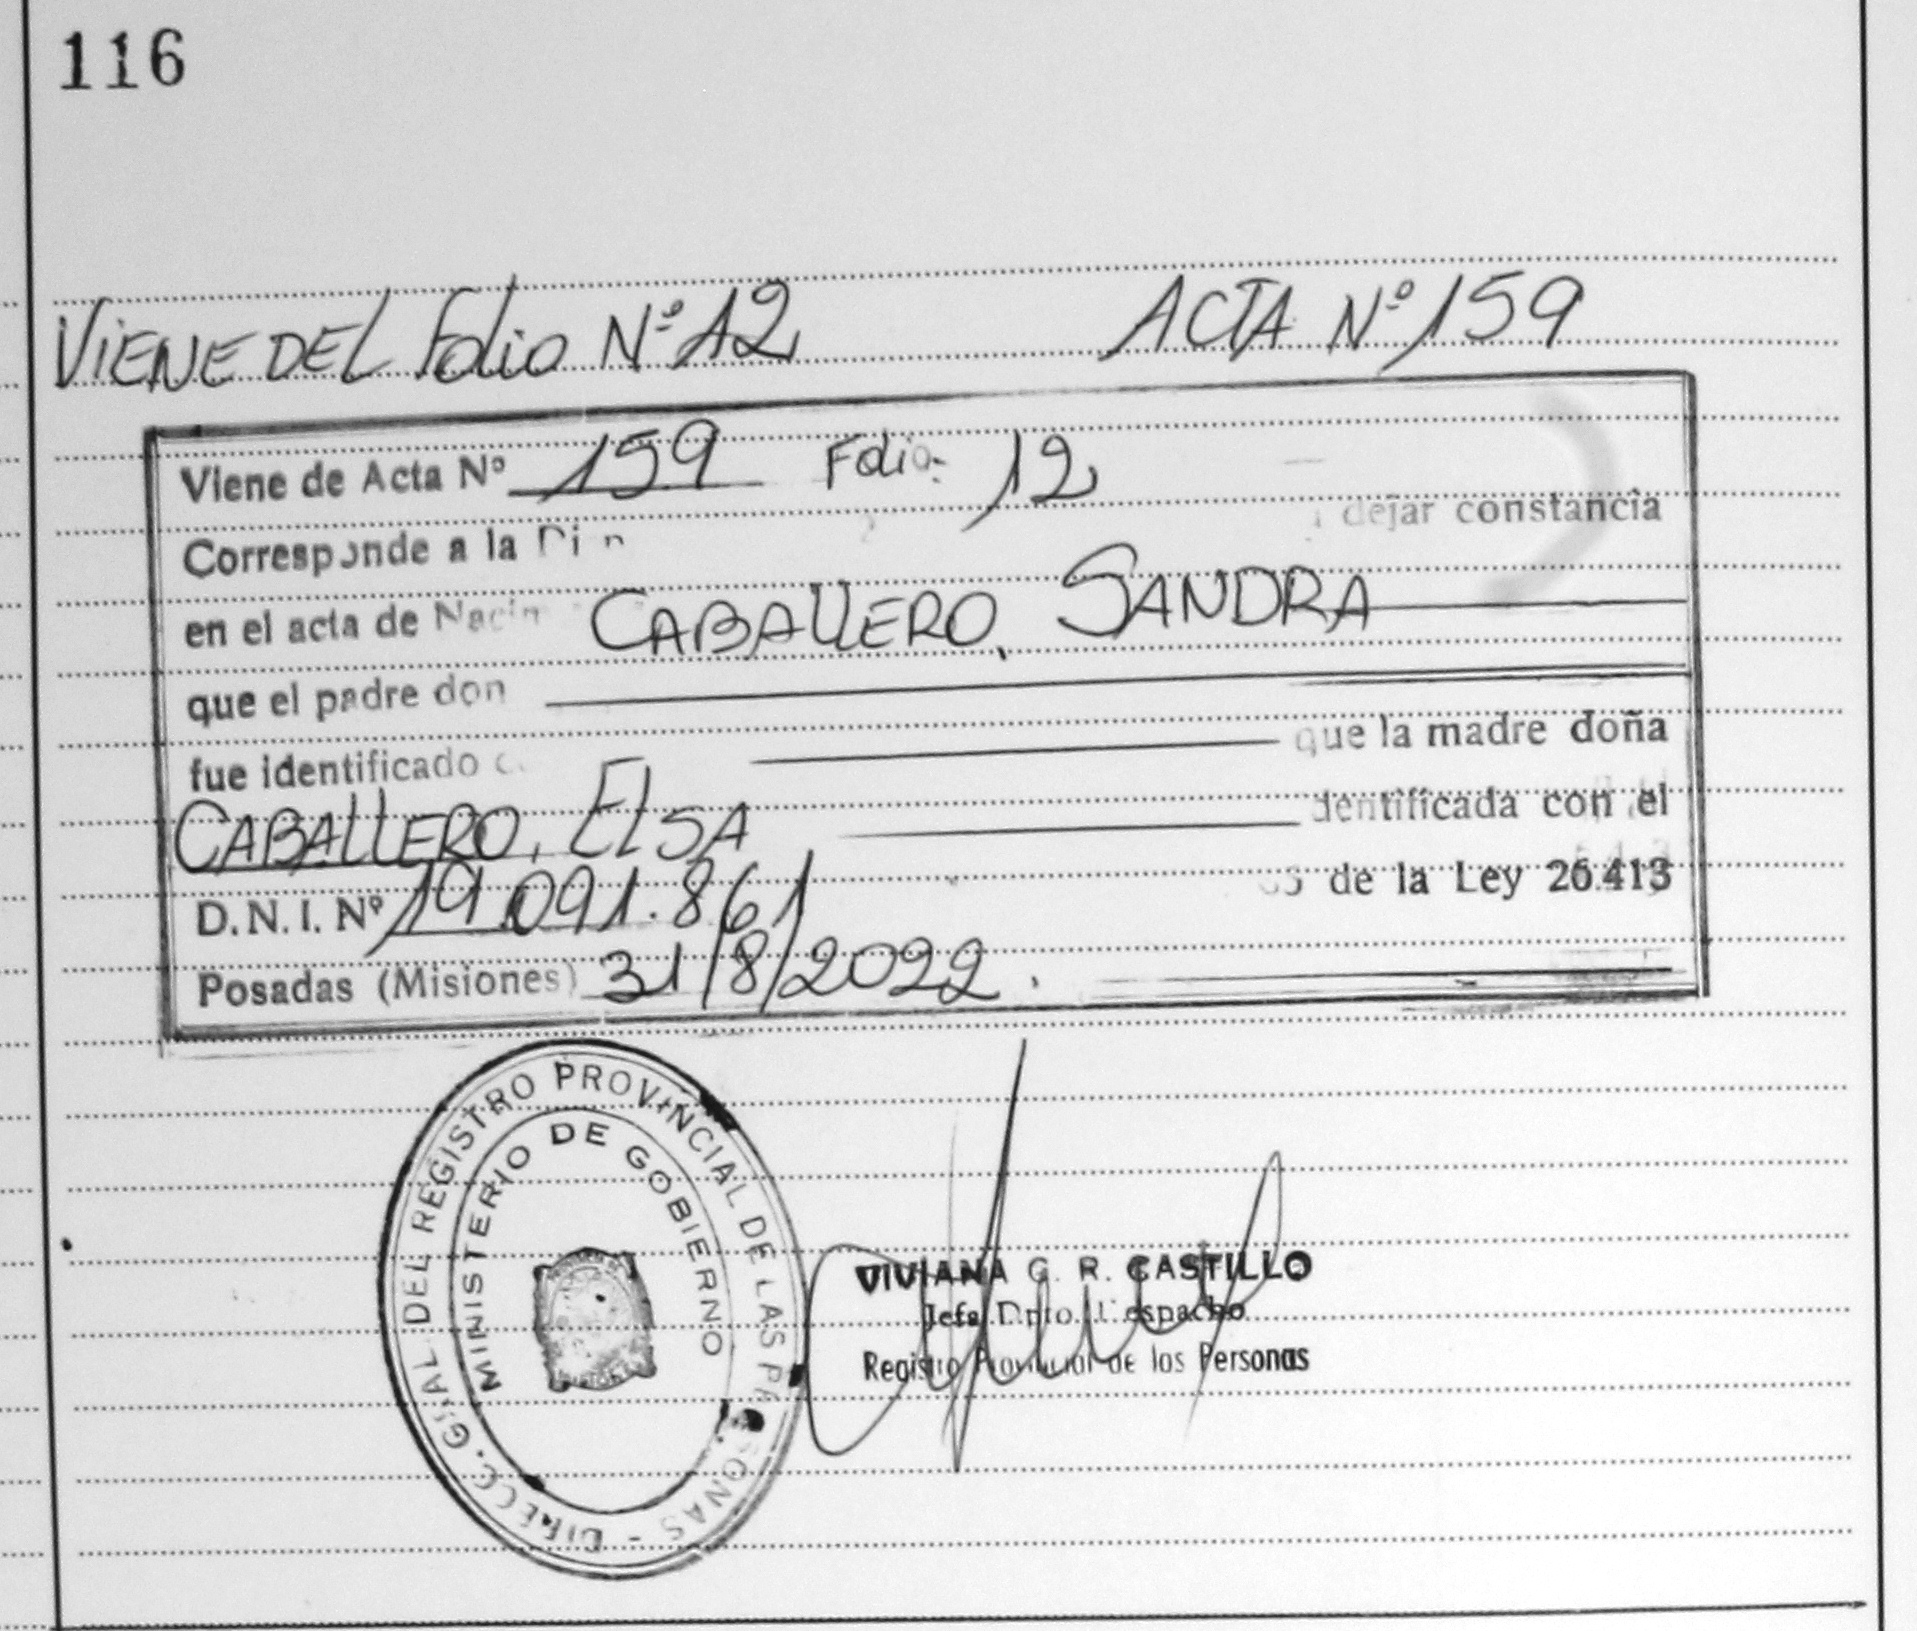 116
VIENE DEL Folio Nº 12 ACTA Nº 159
Viene de Acta Nº 159 Folio: 12
Corresponde a la dejar constancia
en el acta de CABALLERO, SANDRA
que el padre don
fue identificado que la madre doña
CABALLERO, ELSA identificada con el
D.N.I. Nº 19.091.861 de la Ley 26.413
Posadas (Misiones) 31/8/2022.
DIRECC. GRAL DEL REGISTRO PROVINCIAL DE LAS PERSONAS -
MINISTERIO DE GOBIERNO
VIVIANA G. R. CASTILLO
Jefa Dpto. Despacho
Registro Provincial de las Personas